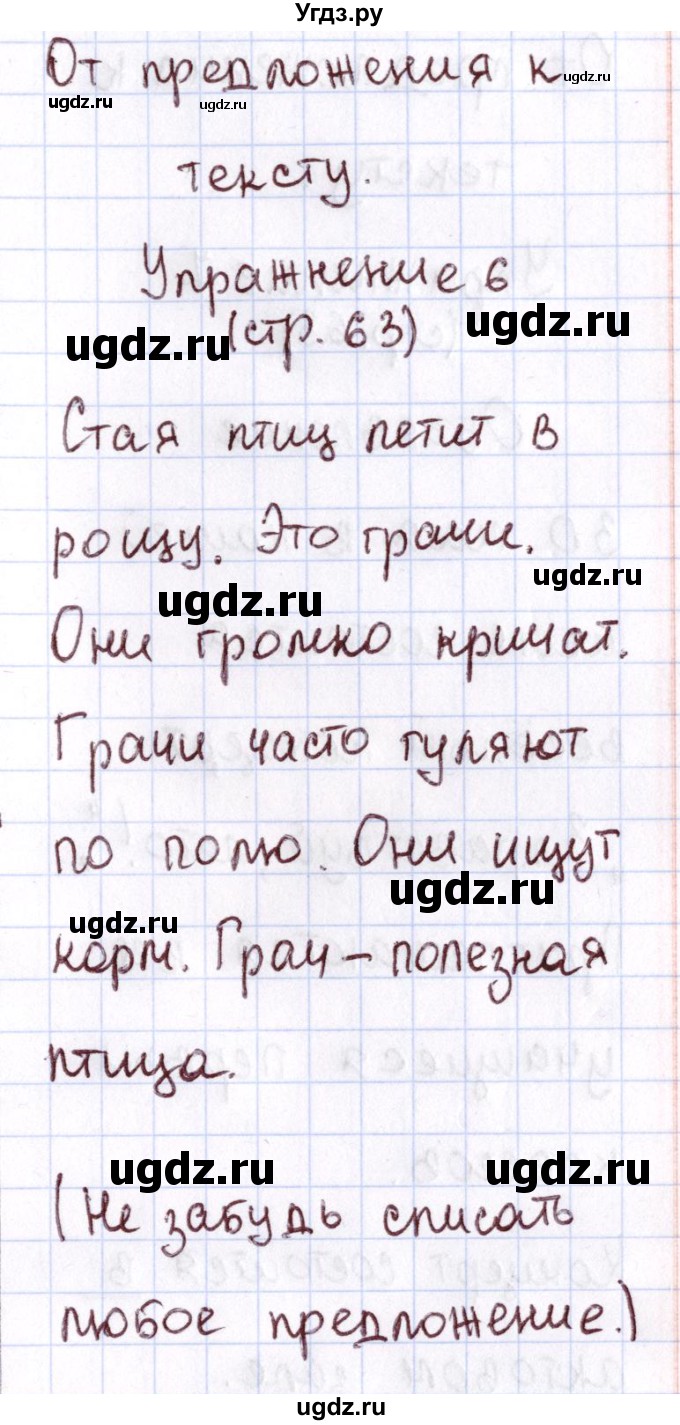 Угдз.ру
От предложения к
ugdz.ru ugdz.ru ugdz.ru
тексту.
Упражнение 6
ugdz.ru (стр. 63) ugdz.ru
Стая птиц летит в
рощу. Это грачи.
ugdz.ru ugdz.ru
Они громко кричат.
Грачи часто гуляют
по полю. Они ищут
ugdz.ru
ugdz.ru
корм. Грач – полезная
птица.
ugdz.ru ugdz.ru
(Не забудь списать
любое предложение.)
ugdz.ru